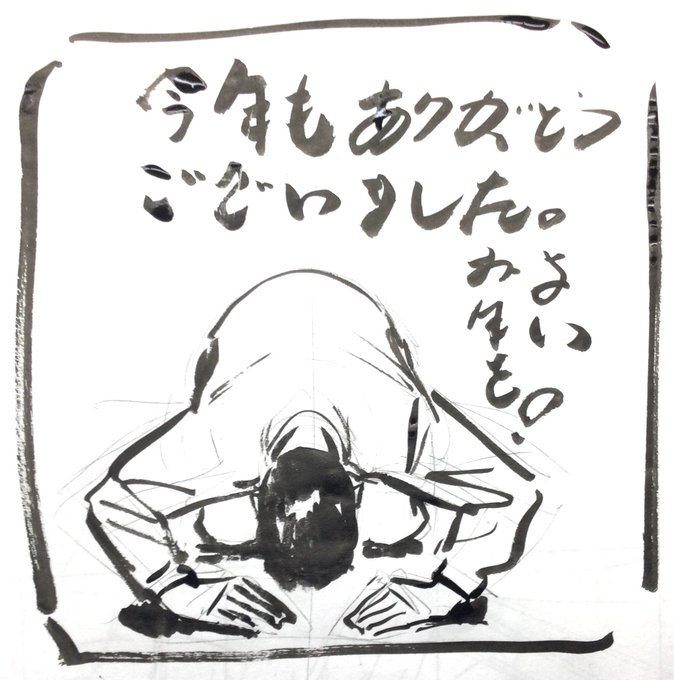 今年もありがとう
ございました。
よい
お年を!